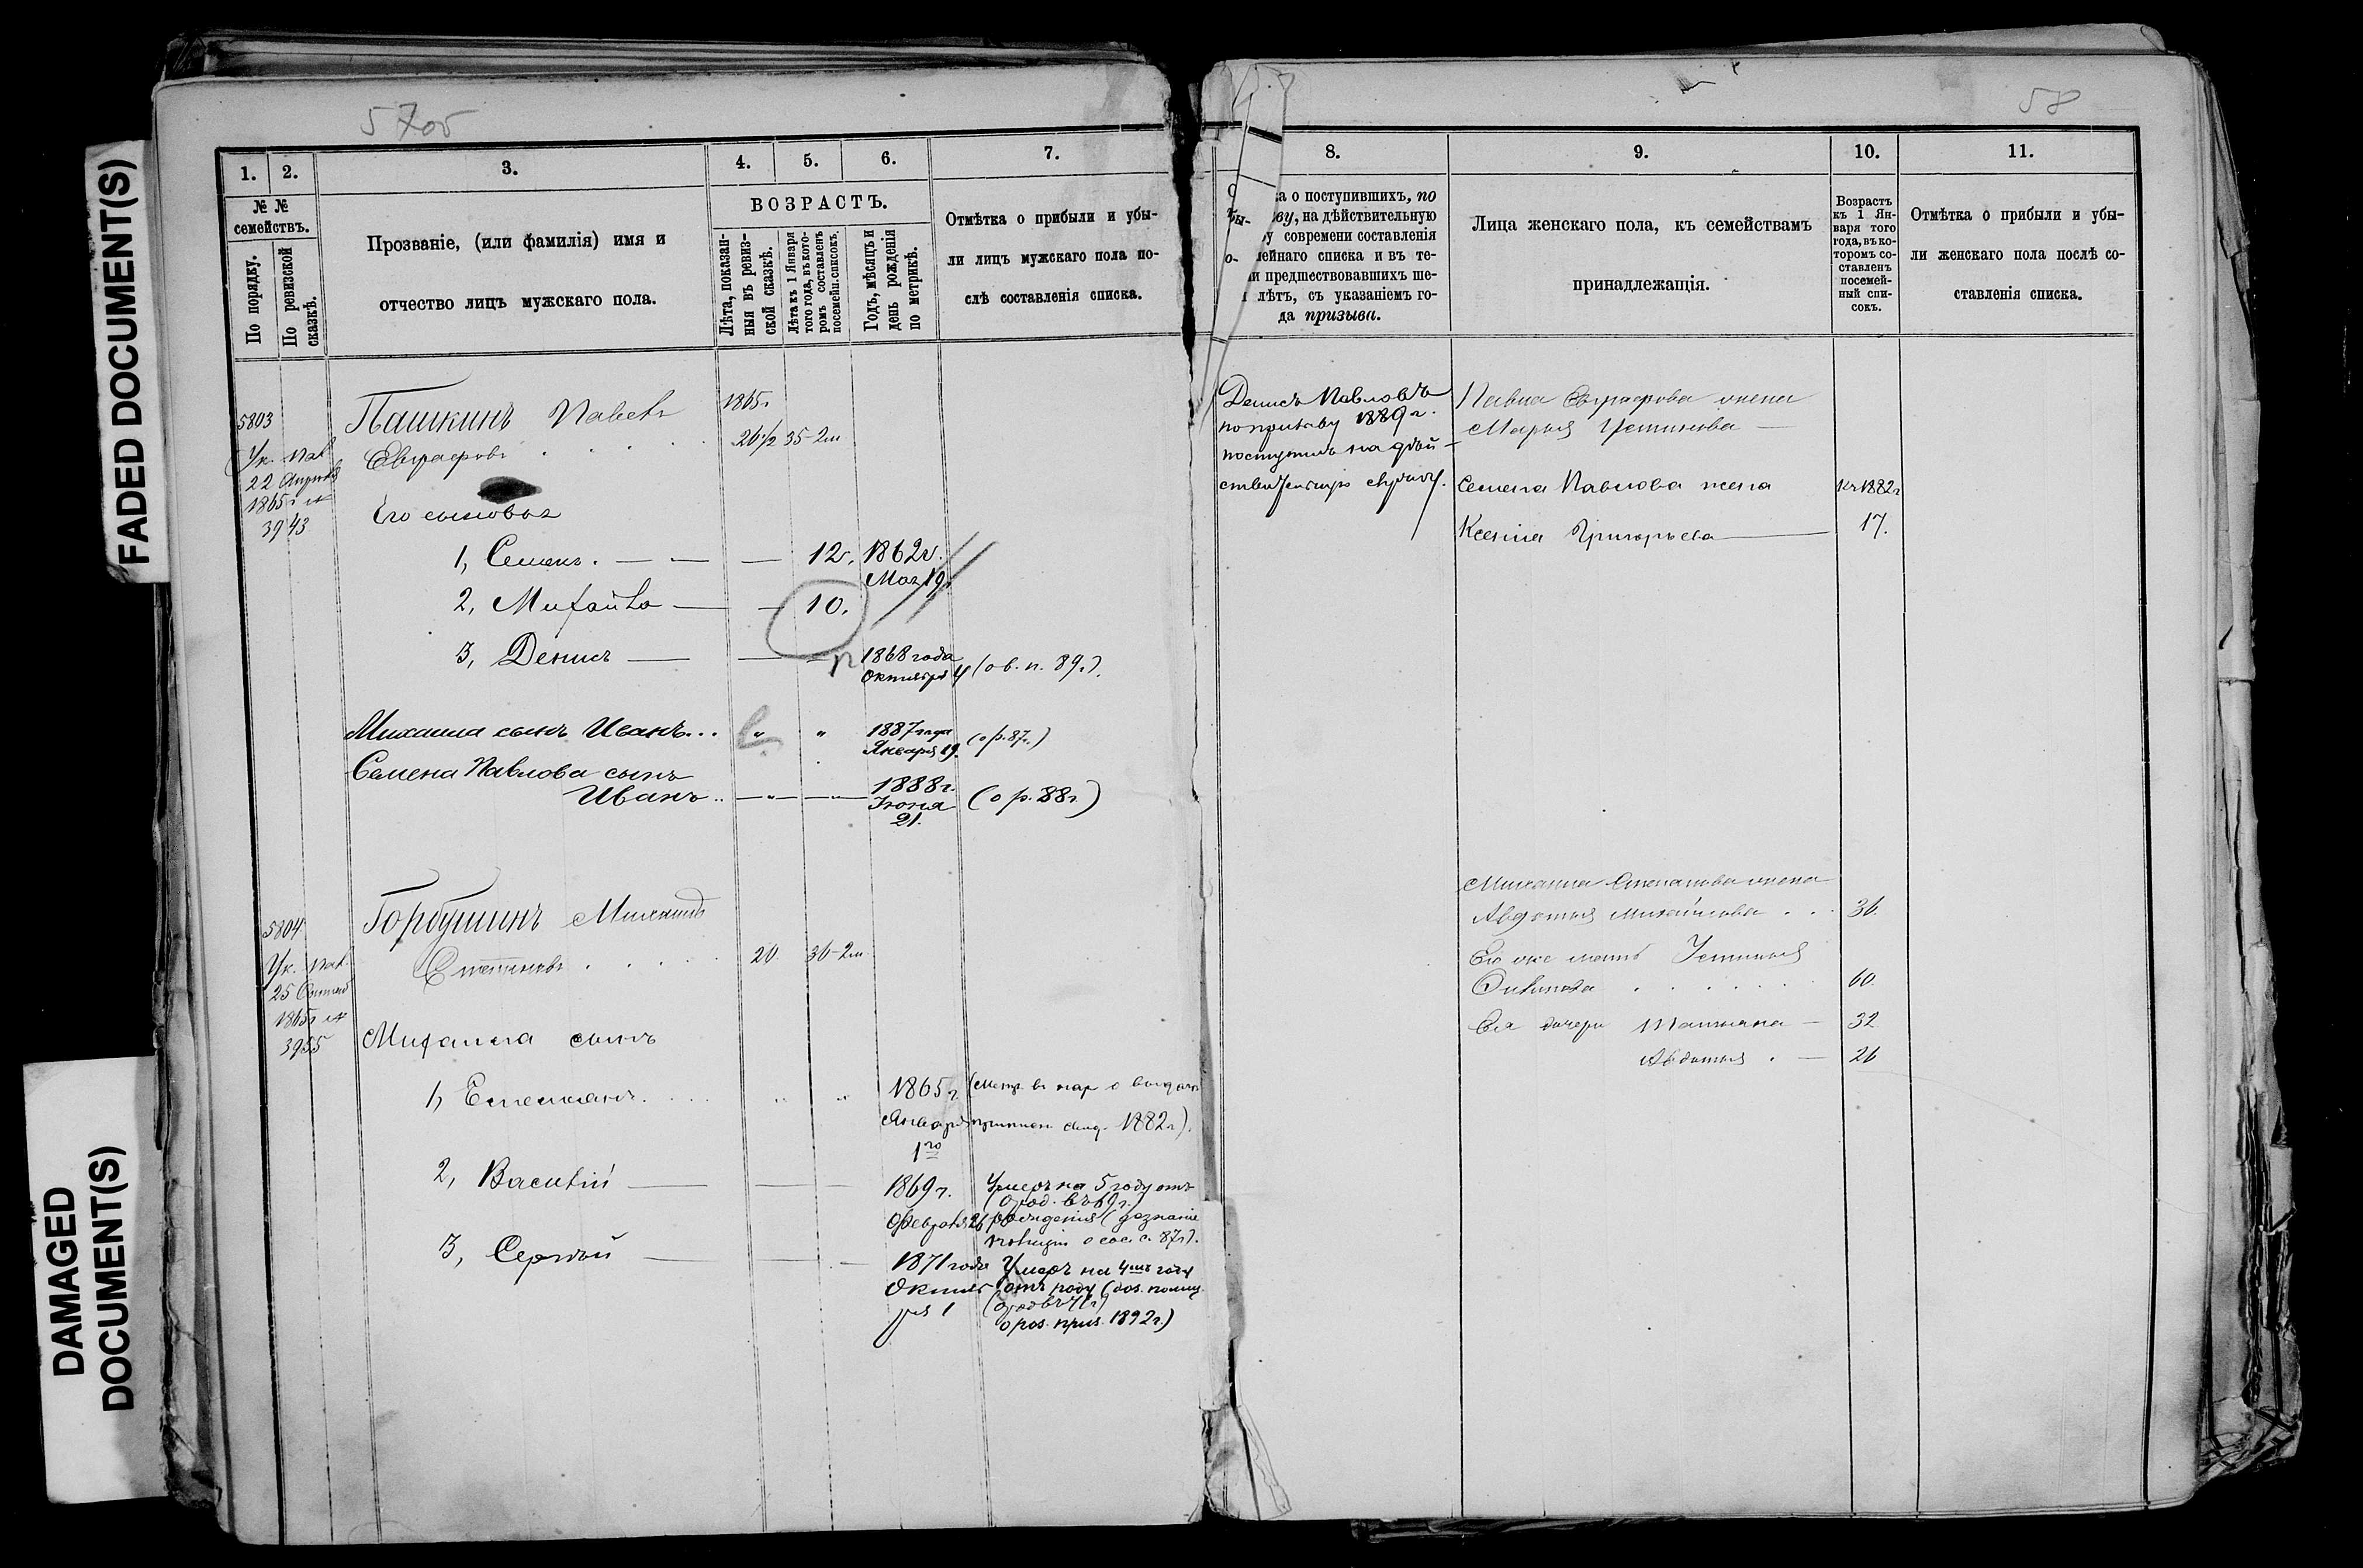 FADED DOCUMENT(S)
DAMAGED
DOCUMENT(S)
58
1.
2.
3.
4.
5.
6.
7.
№ №
семействъ.
По порядку.
По ревизской
сказкѣ.
Прозваніе, (или фамилія) имя и
отчество лицъ мужскаго пола.
ВОЗРАСТЪ.
Лѣта, показан-
ныя въ ревиз-
ской сказкѣ.
Лѣта къ 1 Января
того года, въ кото-
ромъ составленъ
посемейн. списокъ.
Годъ, мѣсяцъ и
день рожденія
по метрикѣ.
Отмѣтка о прибыли и убы-
ли лицъ мужскаго пола по-
слѣ составленія списка.
5803
Ук. Пал
22 Апрѣля
1865 г №
3943
Пашкинъ Павелъ
Евграфовъ
1865г
26 1/2 35-2м
Его сыновья
1, Семенъ. — — — 12г. 1862г.
Мая 19
2, Михайла — — 10.
3, Денисъ — — — 1868 года
Октября 4 (о в. п. 89г.)
Михаила сынъ Иванъ... " " 1887 года
Января 19. (о р. 87г.)
Семена Павлова сынъ
Иванъ.. 1888г.
Іюня (о р. 88г)
21.
5804
Ук. Пал.
25
1865г №
3955
Горбушинъ Михаилъ
20. 36-2м
Михаила сынъ
1, 1865г
Января 1882г).
1го
2, Василій — — — 1869г. Умеръ на 5 году отъ
(о род. въ 69г.)
Февраля 26 рожденія (дознаніе
полиціи о сос. с. 87г).
3, Сергѣй — — — 1871 года Умеръ на 4мъ году
Октяб отъ роду (доз. полиц.
ря 1
1892г.)
8.
9.
10.
11.
а о поступившихъ, по
ву, на дѣйствительную
у современи составленія
ейнаго списка и въ те-
и предшествовавшихъ ше-
лѣтъ, съ указаніемъ го-
да призыва.
Лица женскаго пола, къ семействамъ
принадлежащія.
Возрастъ
къ 1 Ян-
варя того
года, въ ко-
торомъ со-
ставленъ
посемей-
ный спи-
сокъ.
Отмѣтка о прибыли и убы-
ли женскаго пола послѣ со-
ставленія списка.
Денисъ Павловъ
по призыву 1889 г.
поступилъ на дѣй-
ствительную службу.
Павла Евграфова жена
Марья Устинова —
Семена Павлова жена къ 1882г
Ксенія Григорьева — 17.
Михаила жена
Авдотья Михайлова . . 36.
Его же мать Устинья
60.
Ея дочери Татьяна — 32
Авдотья . — 26